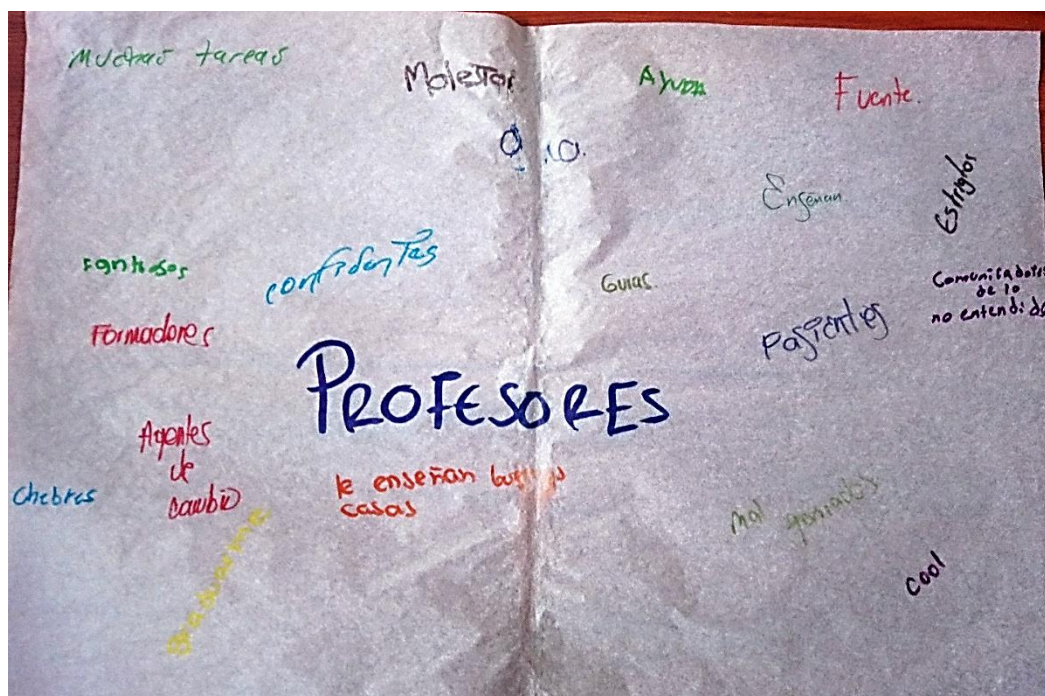 Muchas tareas
Molestar
Ayuda
Fuente.
Enseñan
Estrictos
confidentes
Guias.
Comunicadores
de lo
no entendido
Formadores
Pasientes
PROFESORES
Agentes
de
cambio
Chebres
le enseñan
casas
cool